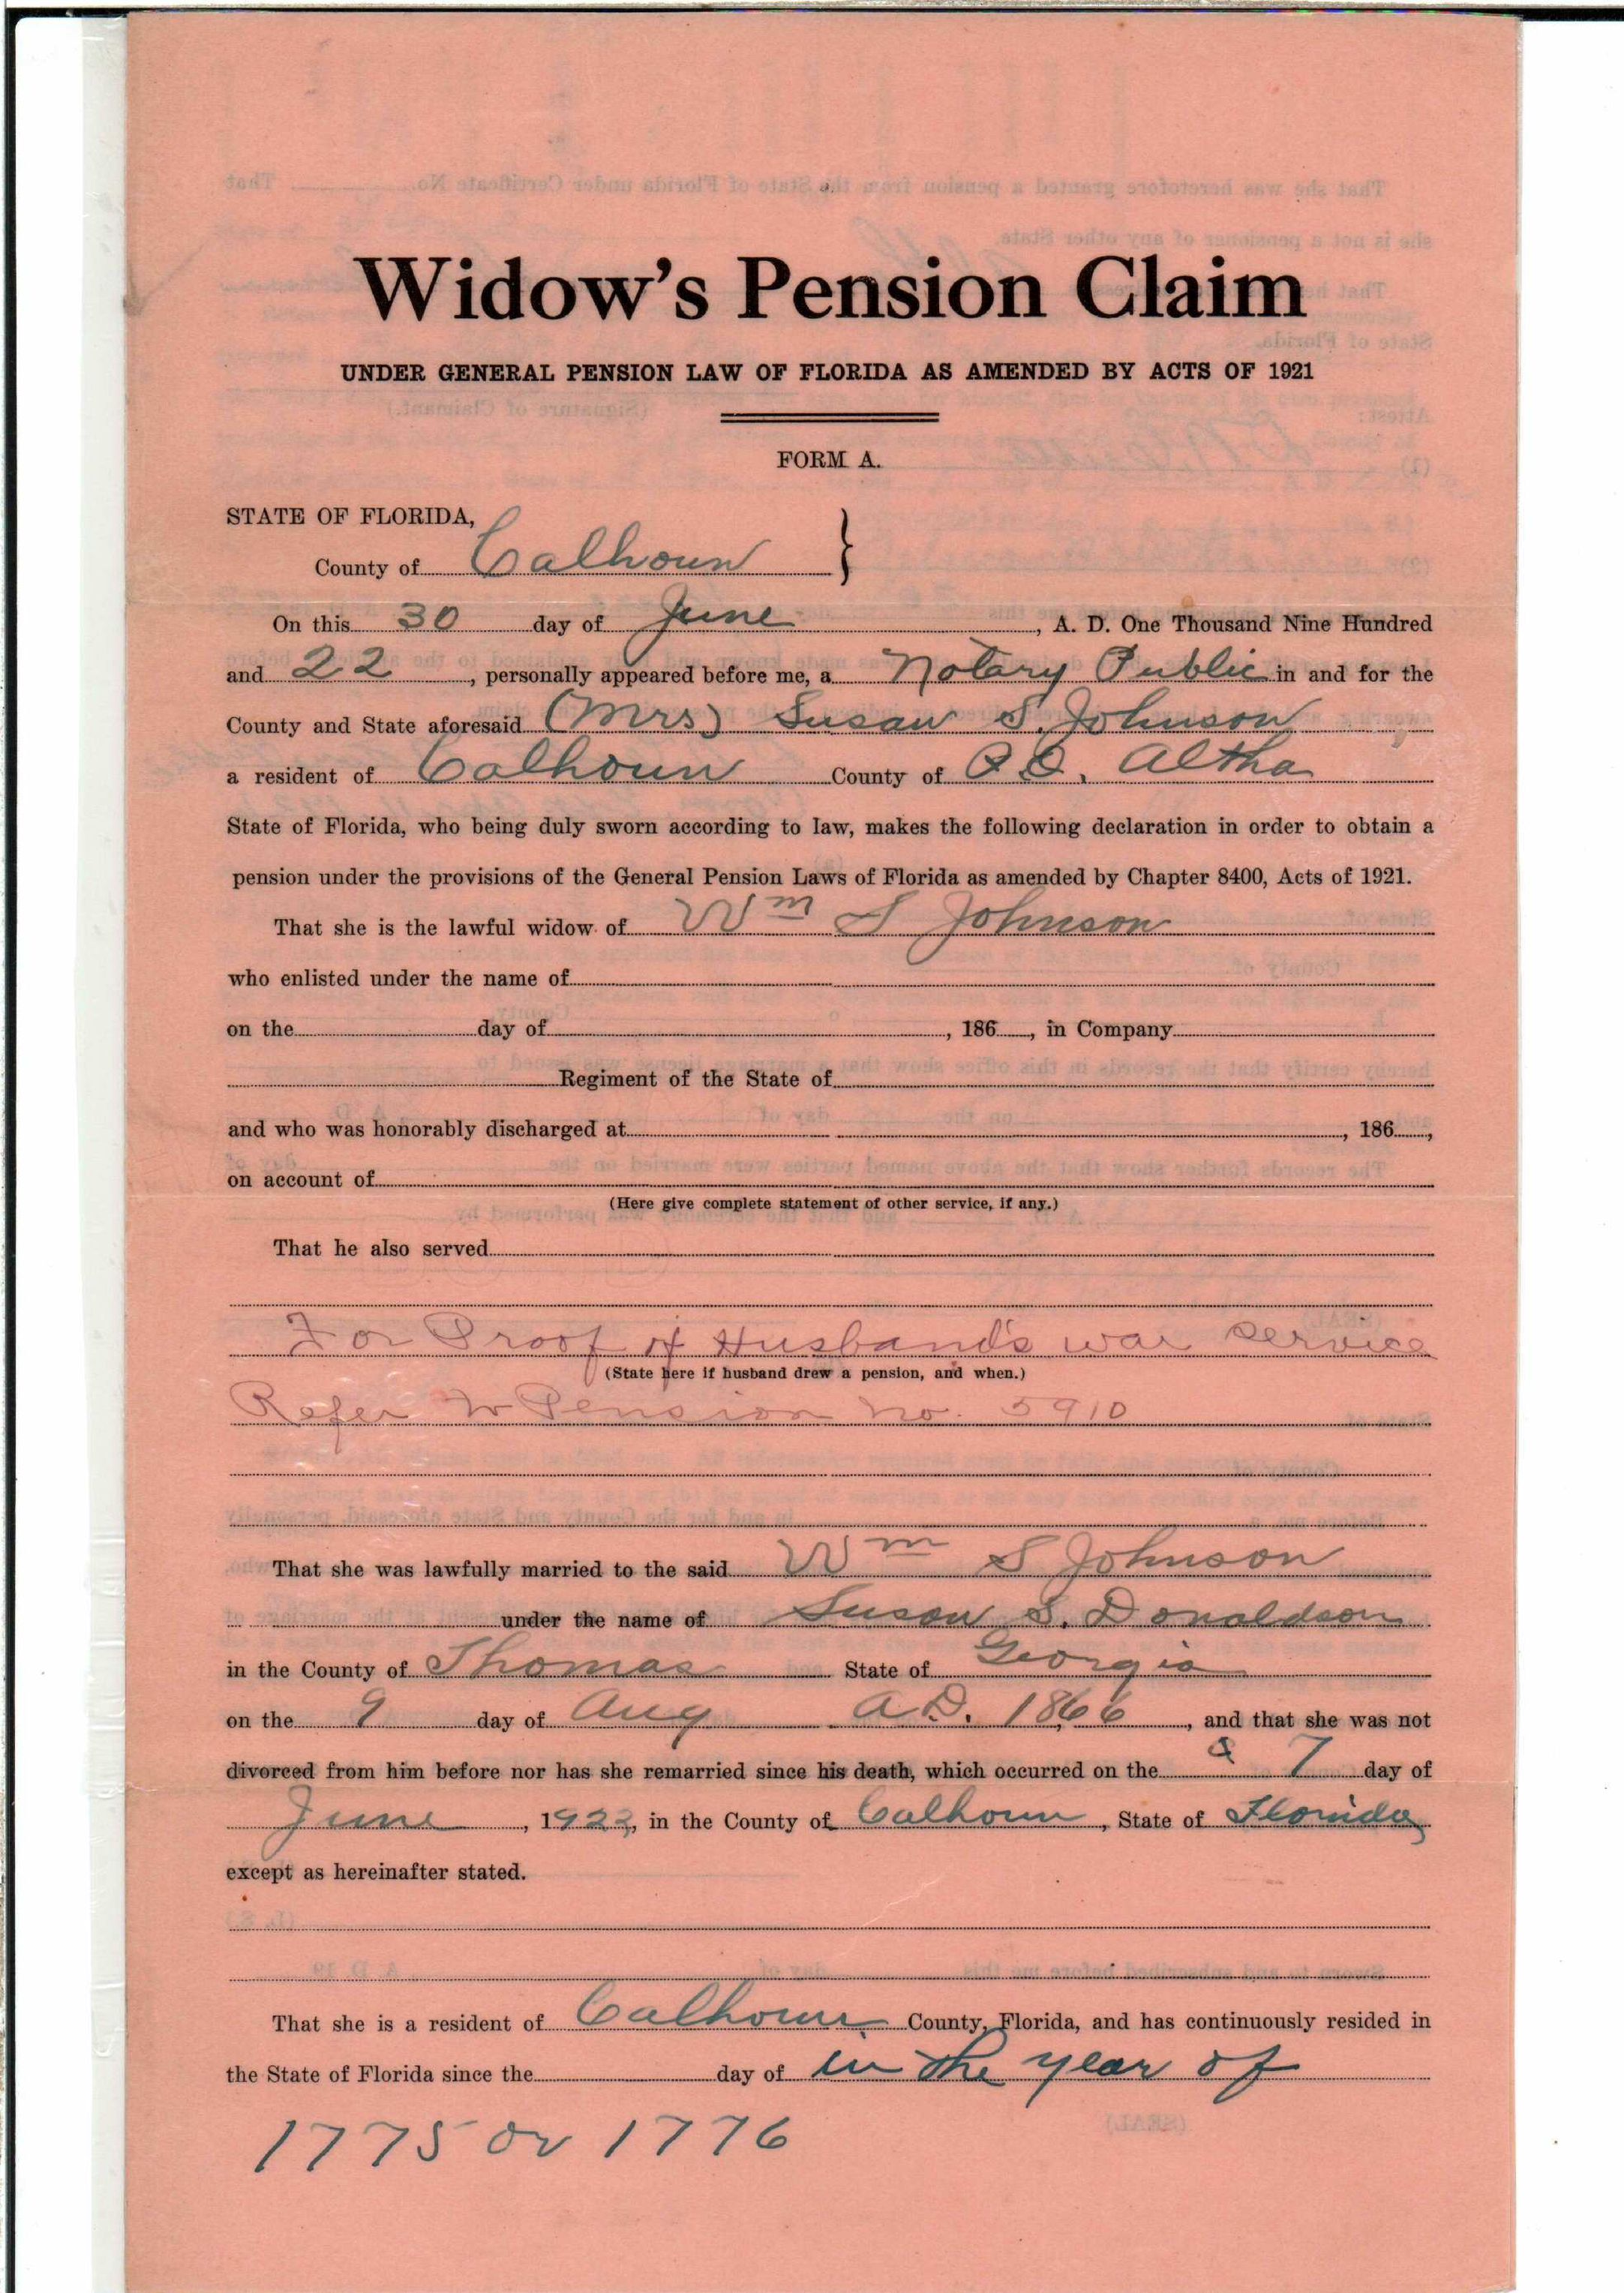 Widow's Pension Claim
UNDER GENERAL PENSION LAW OF FLORIDA AS AMENDED BY ACTS OF 1921
FORM A.
STATE OF FLORIDA,
County of Calhoun }
On this 30 day of June, A. D. One Thousand Nine Hundred
and 22, personally appeared before me, a Notary Public in and for the
County and State aforesaid (Mrs) Susan S. Johnson
a resident of Calhoun County of P.O. Altha
State of Florida, who being duly sworn according to law, makes the following declaration in order to obtain a
pension under the provisions of the General Pension Laws of Florida as amended by Chapter 8400, Acts of 1921.
That she is the lawful widow of Wm S Johnson
who enlisted under the name of
on the day of , 186 , in Company
Regiment of the State of
and who was honorably discharged at , 186 ,
on account of
(Here give complete statement of other service, if any.)
That he also served
For Proof of Husband's war service
(State here if husband drew a pension, and when.)
Refer to Pension No. 5910
That she was lawfully married to the said Wm S Johnson
under the name of Susan S. Donaldson
in the County of Thomas State of Georgia
on the 9 day of Aug A.D. 1866, and that she was not
divorced from him before nor has she remarried since his death, which occurred on the 7 day of
June, 1922, in the County of Calhoun, State of Florida,
except as hereinafter stated.
That she is a resident of Calhoun County, Florida, and has continuously resided in
the State of Florida since the day of in the year of
1775 or 1776